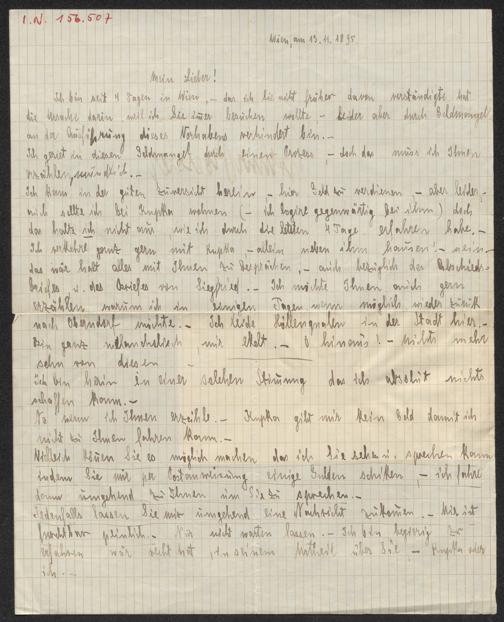 I.N. 156.507
Wien, am 13.11.1895
Mein Lieber!
Ich bin seit 4 Tagen in Wien, – das ich Sie nicht früher davon verständigte hat
die Ursache darin, weil ich Sie besuchen wollte – leider aber durch Geldmangel
an der Ausführung dieses Vorhabens verhindert bin. –
Ich geriet in diesen Geldmangel durch einen Prozess – doch das muss ich Ihnen
erzählen, mündlich. –
Ich kam in der guten Zuversicht herein – hier Geld zu verdienen – aber leider –
auch sollte ich bei Kupka wohnen (– ich logire gegenwärtig bei ihm) doch
das halte ich nicht aus wie ich durch die letzten 4 Tage erfahren habe. –
Ich verkehre ganz gern mit Kupka – allein neben ihm hausen! – nein –
das wär halt alles mit Ihnen zu besprächen, – auch bezüglich des Abschieds-
briefes u. des Briefes von Siegfried. – Ich möchte Ihnen auch gern
erzählen, warum ich in einigen Tagen wenn möglich wieder zurück
nach Oberndorf möchte. – Ich leide Höllenqualen in der Stadt hier. –
Bin ganz melancholisch mir ekelt. – O hinaus! – nichts mehr
sehn von diesen –
Ich bin herin in einer solchen Stimmung das ich absolut nichts
schaffen kann. –
No wenn ich Ihnen erzähle. – Kupka gibt mir kein Geld damit ich
nicht zu Ihnen fahren kann. –
Villeich können Sie es möglich machen das ich Sie sehn u. sprechen kann
indem Sie mir per Postanweisung einige Gulden schiken, – ich fahre
dann umgehend zu Ihnen um Sie zu sprechen. –
Jedenfalls lassen Sie mir umgehend eine Nachricht zukomen. – Mir ist
furchtbar peinlich. – Nur nicht warten lassen. – Ich bin begierig zu
erfahren wär recht hat in seinem Urtheil über Sie – Kupka oder
ich. –